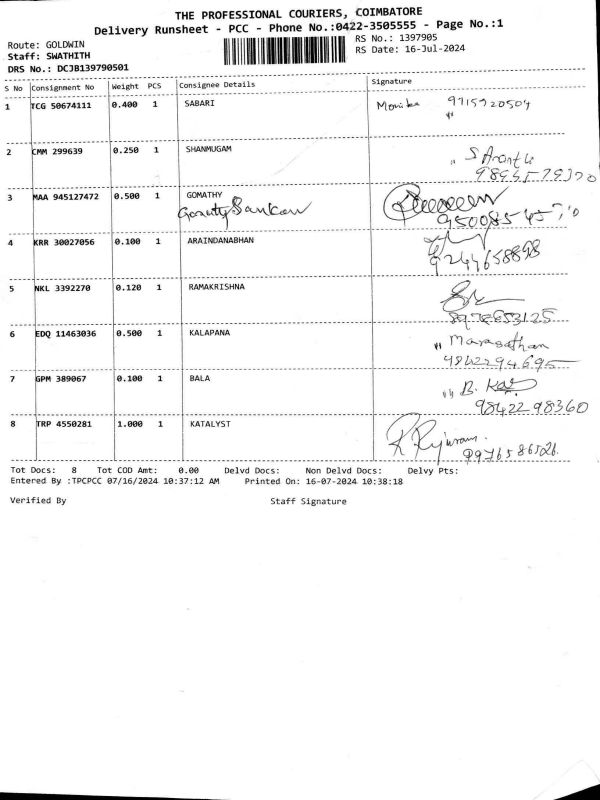 THE PROFESSIONAL COURIERS, COIMBATORE
Delivery Runsheet - PCC - Phone No.:0422-3505555 - Page No.:1
Route: GOLDWIN RS No.: 1397905
Staff: SWATHITH RS Date: 16-Jul-2024
DRS No.: DCJB139790501
S No Consignment No Weight PCS Consignee Details Signature
1 TCG 50674111 0.400 1 SABARI Monika 9715920504
2 CMM 299639 0.250 1 SHANMUGAM
3 MAA 945127472 0.500 1 GOMATHY
4 KRR 30027056 0.100 1 ARAINDANABHAN
9244658898
5 NKL 3392270 0.120 1 RAMAKRISHNA
6 EDQ 11463036 0.500 1 KALAPANA
9842294695
7 GPM 389067 0.100 1 BALA B.
98422 98360
8 TRP 4550281 1.000 1 KATALYST
9976586526
Tot Docs: 8 Tot COD Amt: 0.00 Delvd Docs: Non Delvd Docs: Delvy Pts:
Entered By :TPCPCC 07/16/2024 10:37:12 AM Printed On: 16-07-2024 10:38:18
Verified By Staff Signature